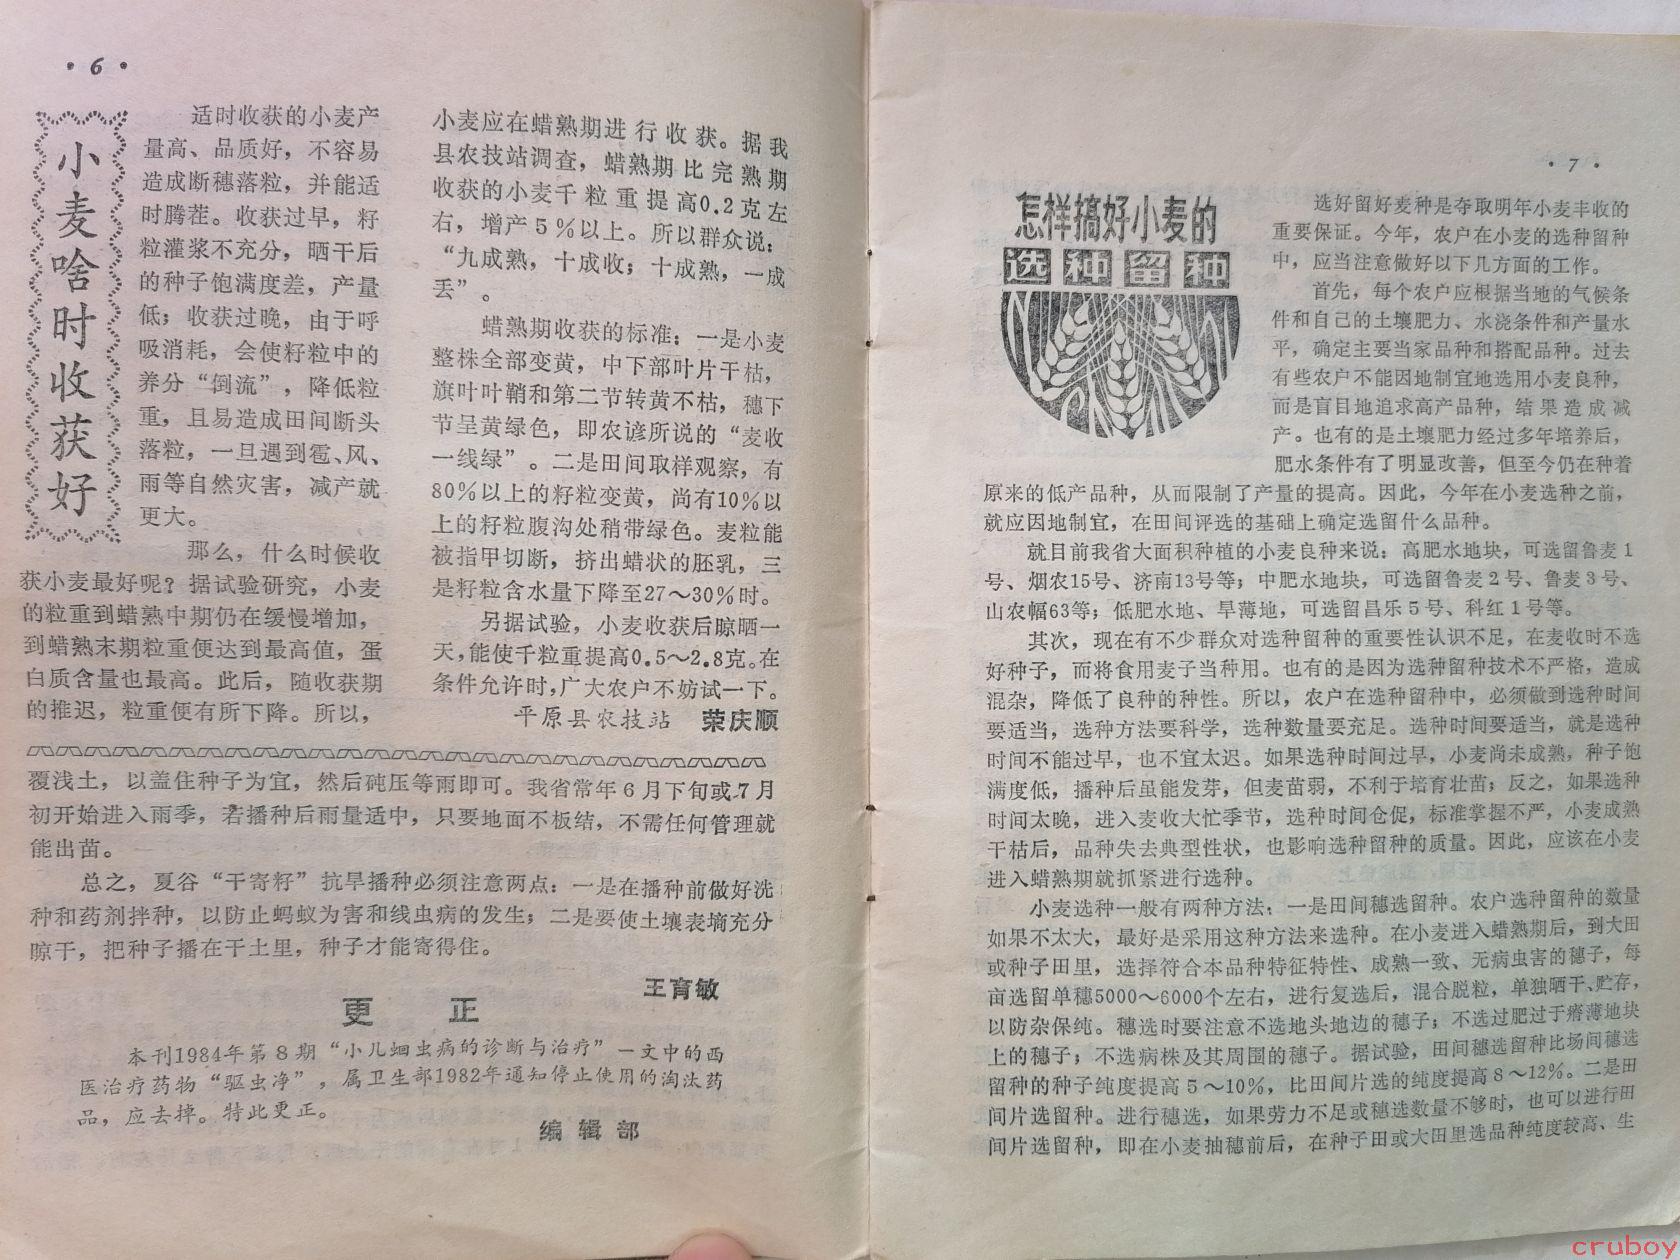 ·6·
小麦啥时收获好
适时收获的小麦产
量高、品质好，不容易
造成断穗落粒，并能适
时腾茬。收获过早，籽
粒灌浆不充分，晒干后
的种子饱满度差，产量
低；收获过晚，由于呼
吸消耗，会使籽粒中的
养分“倒流”，降低粒
重，且易造成田间断头
落粒，一旦遇到雹、风、
雨等自然灾害，减产就
更大。
那么，什么时候收
获小麦最好呢？据试验研究，小麦
的粒重到蜡熟中期仍在缓慢增加，
到蜡熟末期粒重便达到最高值，蛋
白质含量也最高。此后，随收获期
的推迟，粒重便有所下降。所以，
小麦应在蜡熟期进行收获。据我
县农技站调查，蜡熟期比完熟期
收获的小麦千粒重提高0.2克左
右，增产5%以上。所以群众说：
“九成熟，十成收；十成熟，一成
丢”。
蜡熟期收获的标准：一是小麦
整株全部变黄，中下部叶片干枯，
旗叶叶鞘和第二节转黄不枯，穗下
节呈黄绿色，即农谚所说的“麦收
一线绿”。二是田间取样观察，有
80%以上的籽粒变黄，尚有10%以
上的籽粒腹沟处稍带绿色。麦粒能
被指甲切断，挤出蜡状的胚乳，三
是籽粒含水量下降至27～30%时。
另据试验，小麦收获后晾晒一
天，能使千粒重提高0.5～2.8克。在
条件允许时，广大农户不妨试一下。
平原县农技站 荣庆顺
覆浅土，以盖住种子为宜，然后砘压等雨即可。我省常年6月下旬或7月
初开始进入雨季，若播种后雨量适中，只要地面不板结，不需任何管理就
能出苗。
总之，夏谷“干寄籽”抗旱播种必须注意两点：一是在播种前做好洗
种和药剂拌种，以防止蚂蚁为害和线虫病的发生；二是要使土壤表墒充分
晾干，把种子播在干土里，种子才能寄得住。
王育敏
更正
本刊1984年第8期“小儿蛔虫病的诊断与治疗”一文中的西
医治疗药物“驱虫净”，属卫生部1982年通知停止使用的淘汰药
品，应去掉。特此更正。
编辑部
·7·
怎样搞好小麦的
选种留种
选好留好麦种是夺取明年小麦丰收的
重要保证。今年，农户在小麦的选种留种
中，应当注意做好以下几方面的工作。
首先，每个农户应根据当地的气候条
件和自己的土壤肥力、水浇条件和产量水
平，确定主要当家品种和搭配品种。过去
有些农户不能因地制宜地选用小麦良种，
而是盲目地追求高产品种，结果造成减
产。也有的是土壤肥力经过多年培养后，
肥水条件有了明显改善，但至今仍在种着
原来的低产品种，从而限制了产量的提高。因此，今年在小麦选种之前，
就应因地制宜，在田间评选的基础上确定选留什么品种。
就目前我省大面积种植的小麦良种来说：高肥水地块，可选留鲁麦1
号、烟农15号、济南13号等；中肥水地块，可选留鲁麦2号、鲁麦3号、
山农幅63等；低肥水地、旱薄地，可选留昌乐5号、科红1号等。
其次，现在有不少群众对选种留种的重要性认识不足，在麦收时不选
好种子，而将食用麦子当种用。也有的是因为选种留种技术不严格，造成
混杂，降低了良种的种性。所以，农户在选种留种中，必须做到选种时间
要适当，选种方法要科学，选种数量要充足。选种时间要适当，就是选种
时间不能过早，也不宜太迟。如果选种时间过早，小麦尚未成熟，种子饱
满度低，播种后虽能发芽，但麦苗弱，不利于培育壮苗；反之，如果选种
时间太晚，进入麦收大忙季节，选种时间仓促，标准掌握不严，小麦成熟
干枯后，品种失去典型性状，也影响选种留种的质量。因此，应该在小麦
进入蜡熟期就抓紧进行选种。
小麦选种一般有两种方法：一是田间穗选留种。农户选种留种的数量
如果不太大，最好是采用这种方法来选种。在小麦进入蜡熟期后，到大田
或种子田里，选择符合本品种特征特性、成熟一致、无病虫害的穗子，每
亩选留单穗5000～6000个左右，进行复选后，混合脱粒，单独晒干、贮存，
以防杂保纯。穗选时要注意不选地头地边的穗子；不选过肥过于瘠薄地块
上的穗子；不选病株及其周围的穗子。据试验，田间穗选留种比场间穗选
留种的种子纯度提高5～10%，比田间片选的纯度提高8～12%。二是田
间片选留种。进行穗选，如果劳力不足或穗选数量不够时，也可以进行田
间片选留种，即在小麦抽穗前后，在种子田或大田里选品种纯度较高、生
cruboy